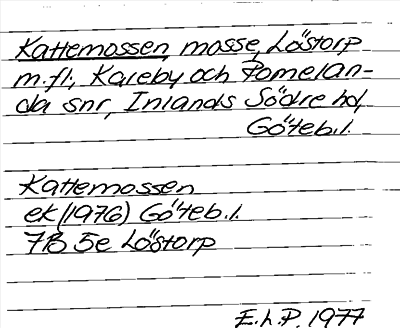 Kattemossen, mosse, Löstorp
m.fl., Kareby och Romelan-
da snr, Inlands Södre hd,
Göteb.l.
Kattemossen
ek (1976) Göteb.l.
7B 5e Löstorp
E.L.P. 1977